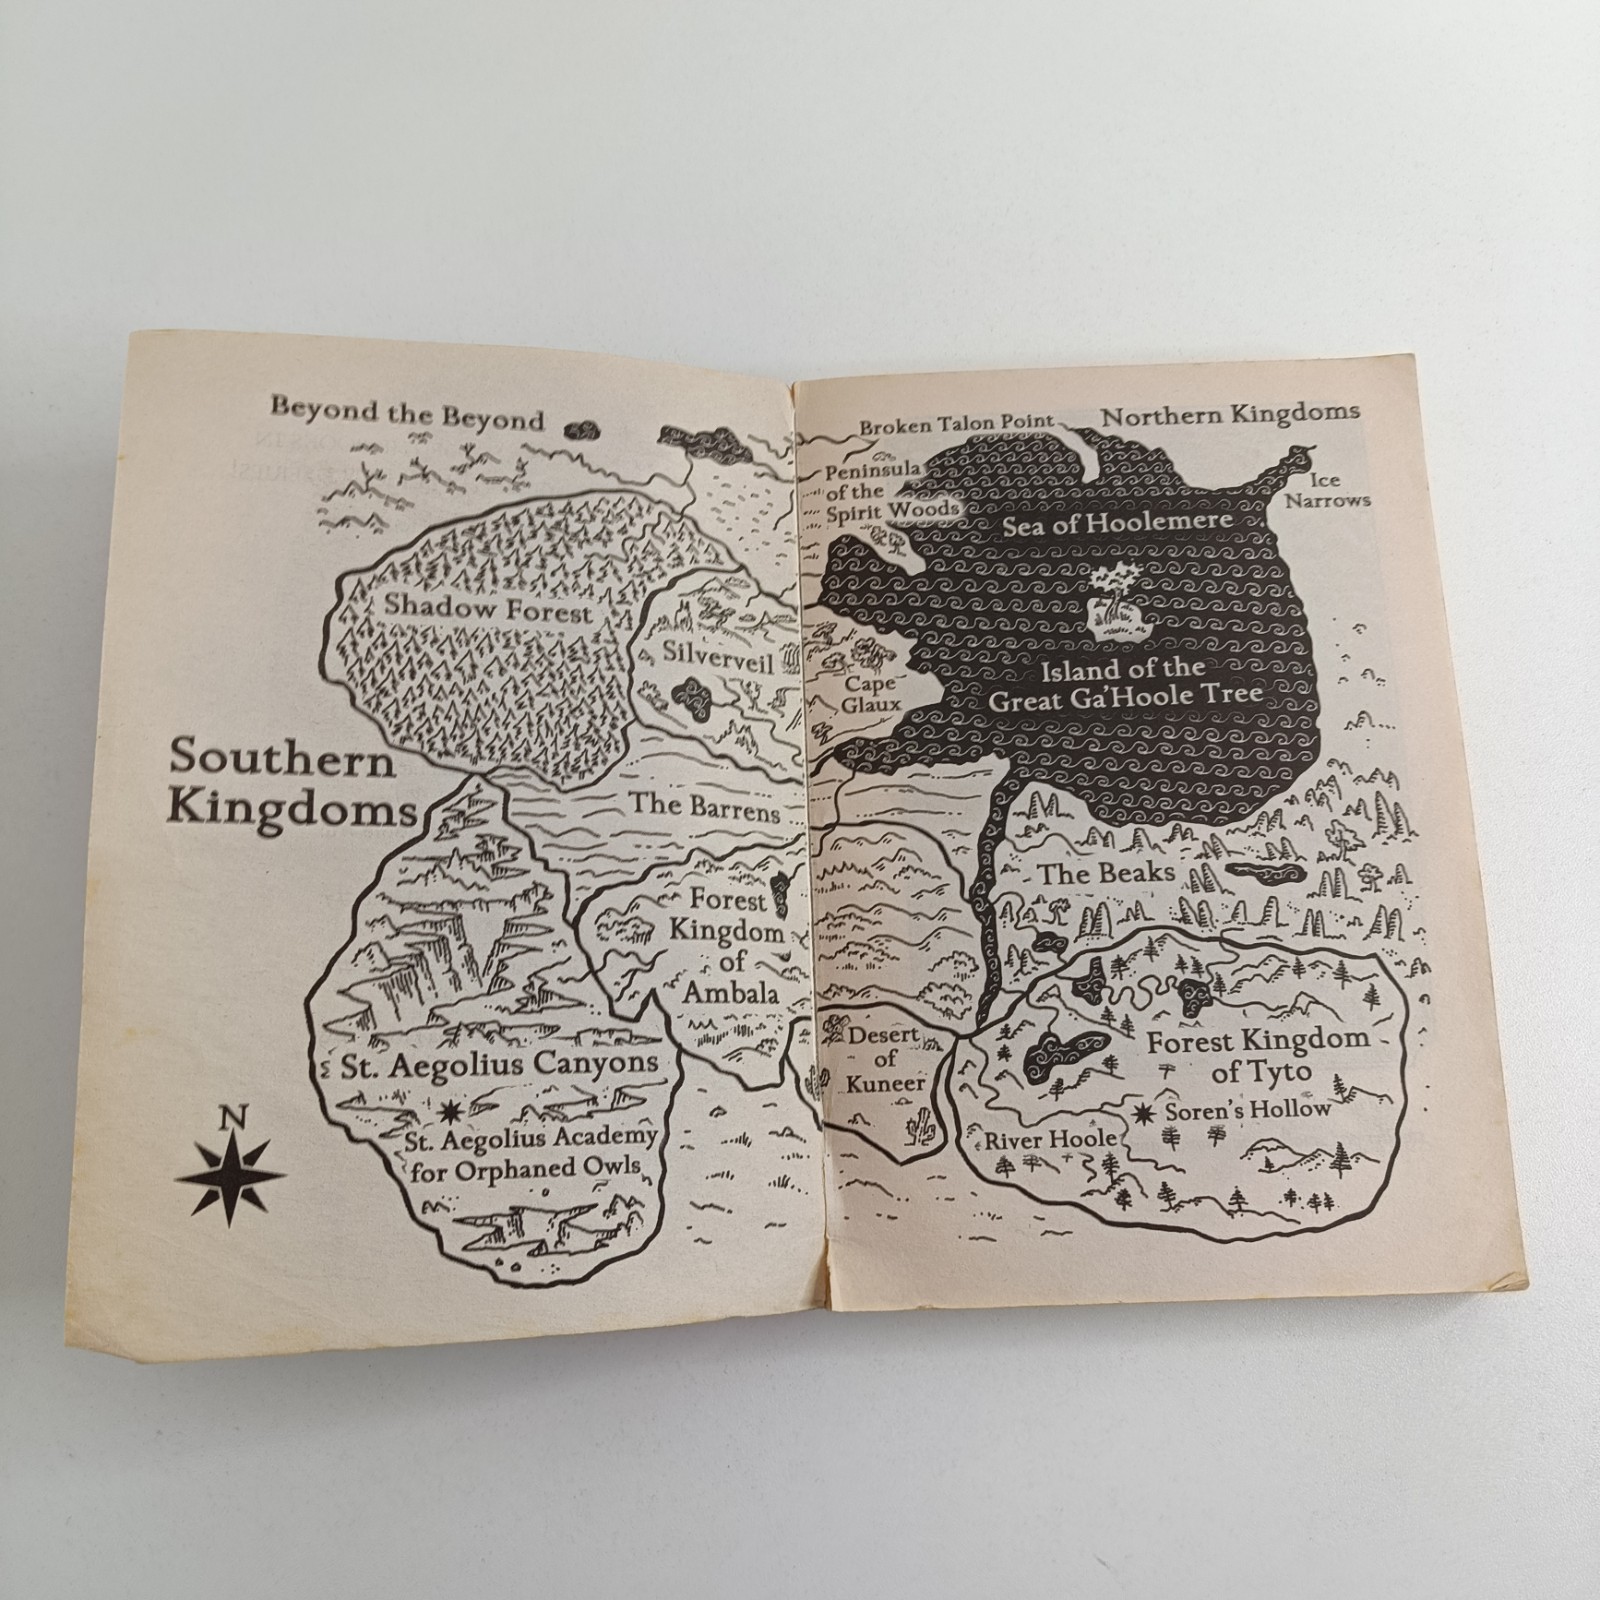 Beyond the Beyond
Shadow Forest
Silverveil
Southern
Kingdoms
The Barrens
Forest
Kingdom
of
Ambala
St. Aegolius Canyons
St. Aegolius Academy
for Orphaned Owls
N
Broken Talon Point
Northern Kingdoms
Peninsula
of the
Spirit Woods
Ice
Narrows
Sea of Hoolemere
Island of the
Great Ga'Hoole Tree
Cape
Glaux
The Beaks
Desert
of
Kuneer
Forest Kingdom
of Tyto
Soren's Hollow
River Hoole